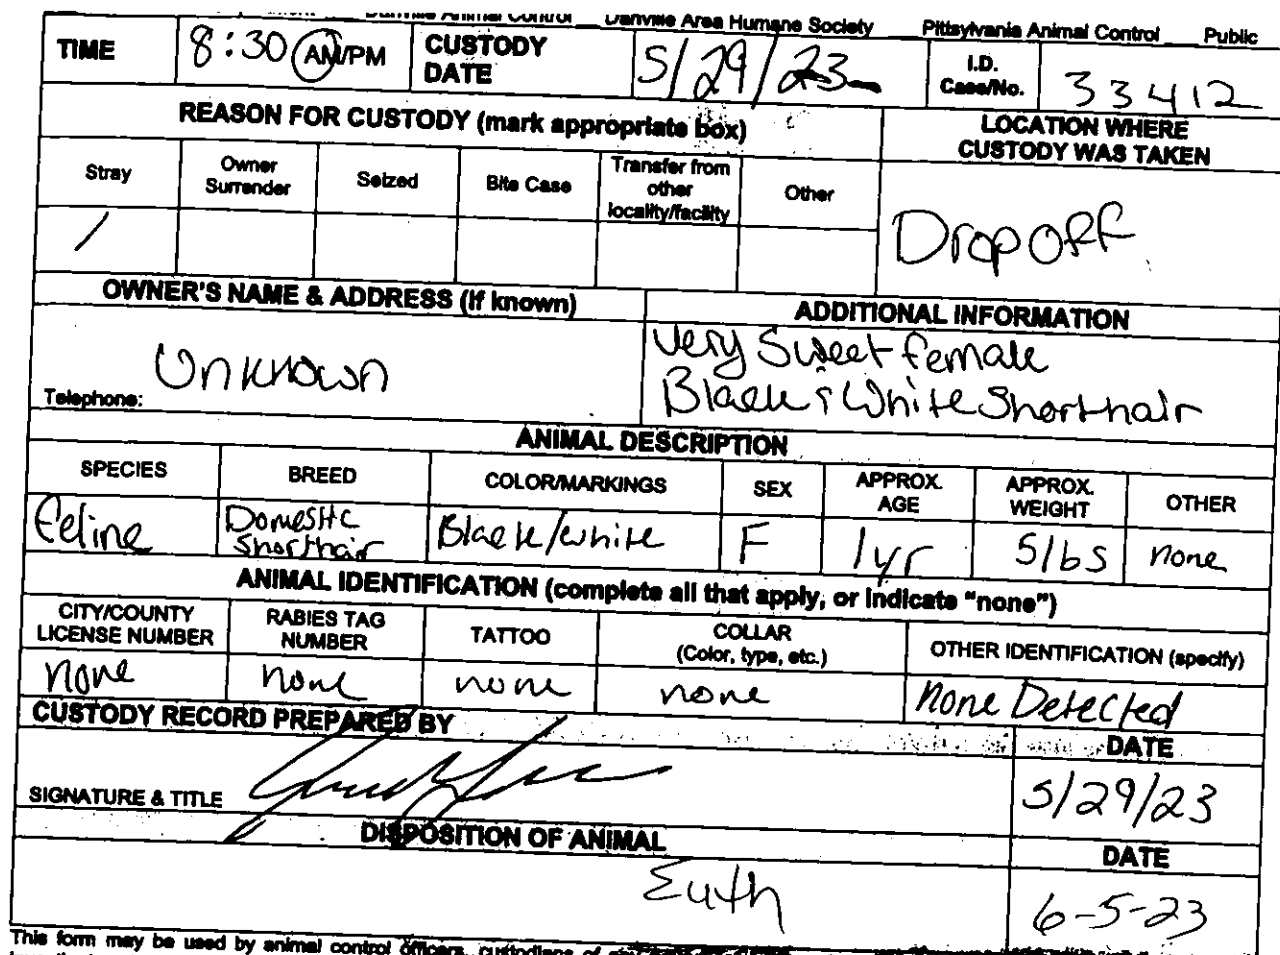 Danville Animal Control Danville Area Humane Society Pittsylvania Animal Control Public
TIME 8:30 AM/PM CUSTODY DATE 5/29/23 I.D. Case/No. 33412
REASON FOR CUSTODY (mark appropriate box)
LOCATION WHERE
CUSTODY WAS TAKEN
Stray
Owner
Surrender
Seized
Bite Case
Transfer from
other
locality/facility
Other
/
Drop Off
OWNER'S NAME & ADDRESS (if known)
Unknown
Telephone:
ADDITIONAL INFORMATION
Very Sweet female
Black & White Shorthair
ANIMAL DESCRIPTION
SPECIES
BREED
COLOR/MARKINGS
SEX
APPROX.
AGE
APPROX.
WEIGHT
OTHER
feline
Domestic
Shorthair
Black/white
F
1yr
5lbs
none
ANIMAL IDENTIFICATION (complete all that apply, or indicate "none")
CITY/COUNTY
LICENSE NUMBER
RABIES TAG
NUMBER
TATTOO
COLLAR
(Color, type, etc.)
OTHER IDENTIFICATION (specify)
none
none
none
none
none Detected
CUSTODY RECORD PREPARED BY
DATE
SIGNATURE & TITLE
5/29/23
DISPOSITION OF ANIMAL
DATE
Euth
6-5-23
This form may be used by animal control officers, custodians of